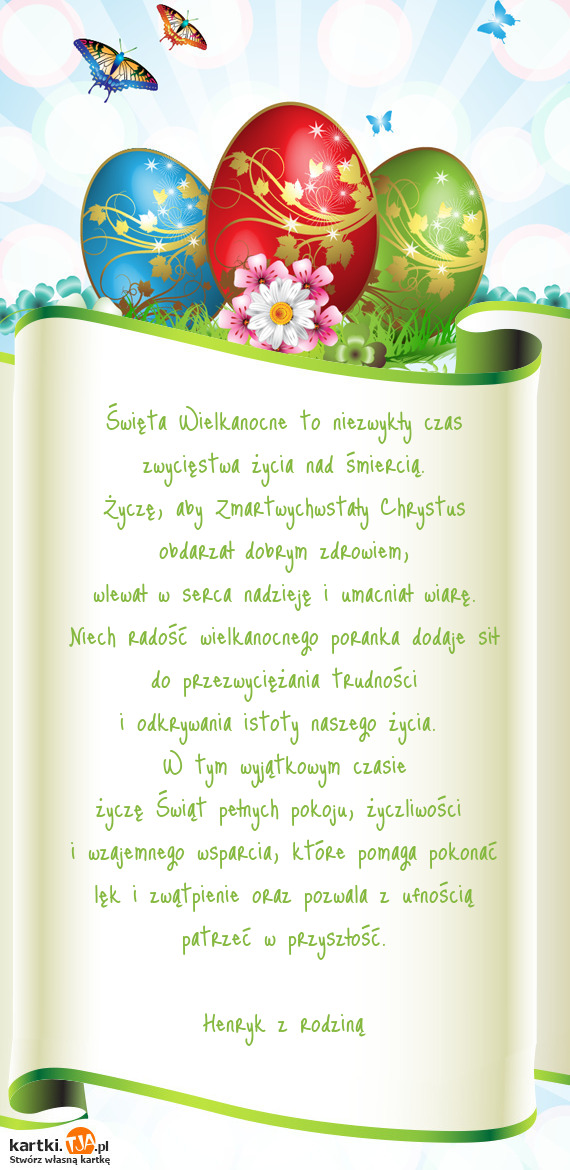 Święta Wielkanocne to niezwykły czas
zwycięstwa życia nad śmiercią.
Życzę, aby Zmartwychwstały Chrystus
obdarzał dobrym zdrowiem,
wlewał w serca nadzieję i umacniał wiarę.
Niech radość wielkanocnego poranka dodaje sił
do przezwyciężania trudności
i odkrywania istoty naszego życia.
W tym wyjątkowym czasie
życzę Świąt pełnych pokoju, życzliwości
i wzajemnego wsparcia, które pomaga pokonać
lęk i zwątpienie oraz pozwala z ufnością
patrzeć w przyszłość.
Henryk z rodziną
kartki.TJA.pl
Stwórz własną kartkę